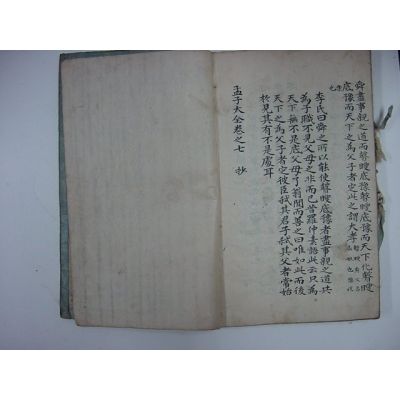 舜盡事親之道而瞽瞍底豫瞽瞍底豫而天下化瞽瞍
底豫而天下之爲父子者定此之謂大孝
李氏曰舜之所以能使瞽瞍底豫者盡事親之道共
爲子職不見父母之非而已昔羅仲素語此云只爲
天下無不是底父母了翁聞而善之曰唯如此而後
天下之爲父子者定彼臣弑其君子弑其父者常始
於見其有不是處耳
孟子大全卷之七 抄